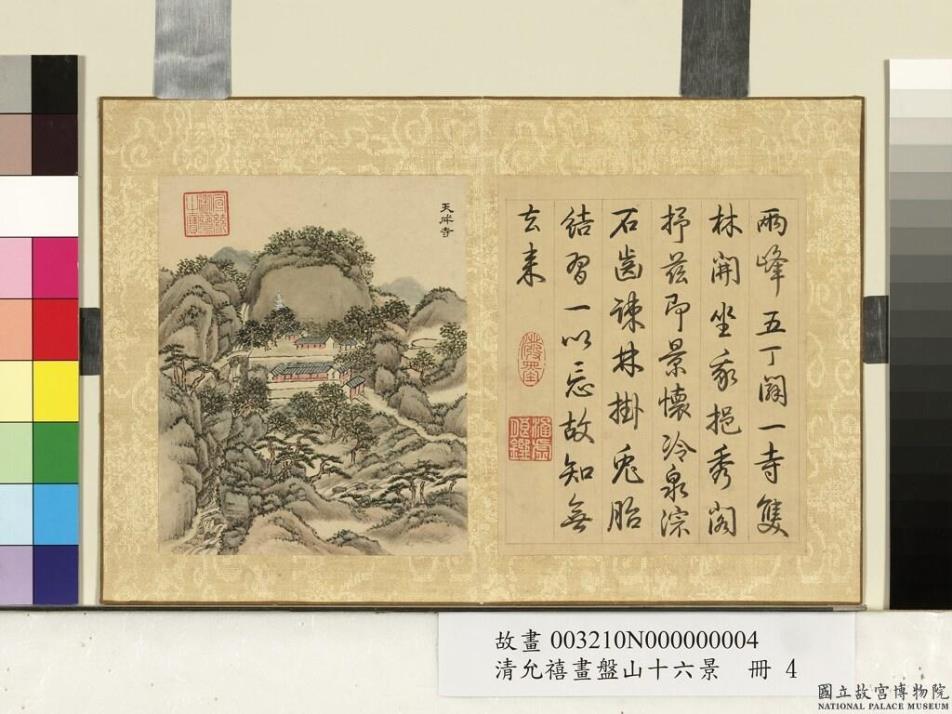 天成寺
兩峰五丁闢一寺雙
林開坐我挹秀閣
抒茲即景懷冷泉淙
石齒疎林掛兎胎
結習一以忘故知無
去來
故畫 003210N000000004
清允禧畫盤山十六景 冊 4
國立故宮博物院
NATIONAL PALACE MUSEUM